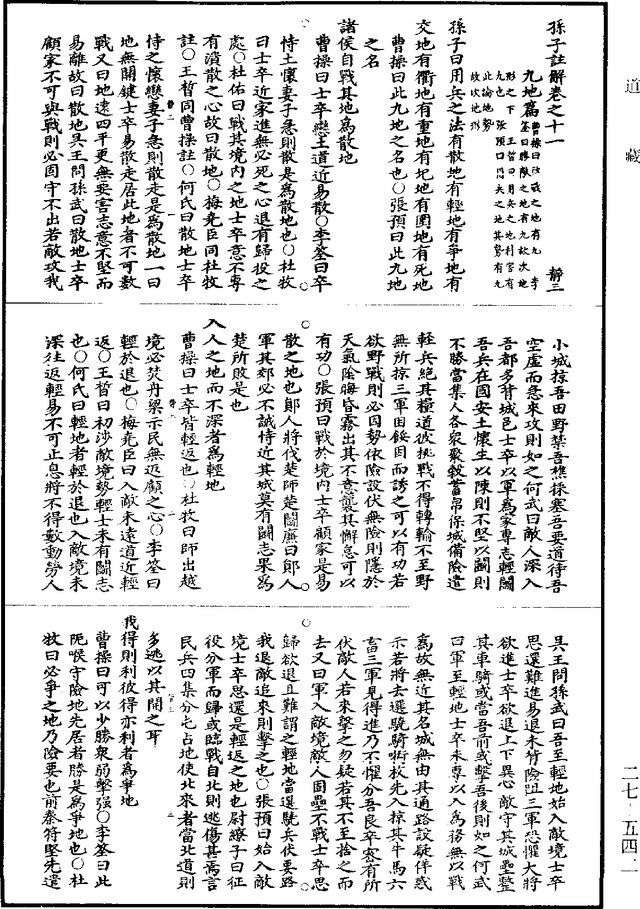 道藏
孫子註解卷之十一 靜三
九地篇 曹操曰欲戰之地有九 李
筌曰勝敵之地有九故次地
形之下 王晳曰用兵之地利害有
九也 張預曰用兵之地其勢有九
此論地勢
故次地形
孫子曰用兵之法有散地有輕地有爭地有
交地有衢地有重地有圮地有圍地有死地
曹操曰此九地之名也○張預曰此九地
之名
諸侯自戰其地為散地
曹操曰士卒戀土道近易散○李筌曰卒
恃土懷妻子急則散是為散地也○杜牧
曰士卒近家進無必死之心退有歸投之
處○杜佑曰戰其境内之地士卒意不專
有潰散之心故曰散地○梅堯臣同杜牧
註○王晳同曹操註○何氏曰散地士卒
恃之懷戀妻子急則散走是為散地一曰
地無關鍵士卒易散走居此地者不可數
戰又曰地遠四平更無要害志意不堅而
易離故曰散地吳王問孫武曰散地士卒
顧家不可與戰則必固守不出若敵攻我
小城掠吾田野禁吾樵採塞吾要道待吾
空虛而急來攻則如之何武曰敵人深入
吾都多背城邑士卒以軍為家專志輕鬭
吾兵在國安土懷生以陳則不堅以鬭則
不勝當集人合衆聚穀蓄帛保城備險遣
輕兵絕其糧道彼挑戰不得轉輸不至野
無所掠三軍困餒因而誘之可以有功若
欲野戰則必因勢依險設伏無險則隱於
天氣陰晦昏霧出其不意襲其懈怠可以
有功○張預曰戰於境内士卒顧家是易
散之地也鄖人將伐楚師楚鬬廉曰鄖人
軍其郊必不誡恃近其城莫有鬭志果為
楚所敗是也
入人之地而不深者為輕地
曹操曰士卒皆輕返也○杜牧曰師出越
境必焚舟梁示民無返顧之心○李筌曰
輕於退也○梅堯臣曰入敵未遠道近輕
返○王晳曰初涉敵境勢輕士未有鬭志
也○何氏曰輕地者輕於退也入敵境未
深往返輕易不可止息將不得數動勞人
吳王問孫武曰吾至輕地始入敵境士卒
思還難進易退未背險阻三軍恐懼大將
欲進士卒欲退上下異心敵守其城壘整
其車騎或當吾前或擊吾後則如之何武
曰軍至輕地士卒未專以入為務無以戰
為故無近其名城無由其通路設疑佯惑
示若將去選驍騎啣枚先入掠其牛馬六
畜三軍見得進乃不懼分吾良卒密有所
伏敵人若來擊之勿疑若其不至捨之而
去又曰軍入敵境敵人固壘不戰士卒思
歸欲退且難謂之輕地當選驍兵伏要路
我退敵追來則擊之也○張預曰始入敵
境士卒思還是輕返之地也尉繚子曰征
役分軍而歸或臨戰自北則逃傷甚焉言
民兵四集分屯占地使北來者當北道則
多逃以其開之耳
我得則利彼得亦利者為爭地
曹操曰可以少勝衆弱擊强○李筌曰此
阨喉守險地先居者勝是為爭地也○杜
牧曰必爭之地乃險要也前秦苻堅先遣
二七·五四二